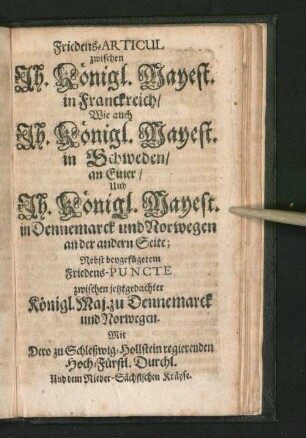 Friedens-ARTICUL
zwischen
Ih. Königl. Mayest.
in Franckreich/
Wie auch
Ih. Königl. Mayest.
in Schweden/
an Einer/
Und
Ih. Königl. Mayest.
in Dennemarck und Norwegen
an der andern Seite;
Nebst beygefügetem
Friedens-PUNCTE
zwischen jetztgedachter
Königl. Maj. zu Dennemarck
und Norwegen.
Mit
Dero zu Schleßwig-Hollstein regierenden
Hoch-Fürstl. Durchl.
Und dem Nieder-Sächsischen Kräyse.